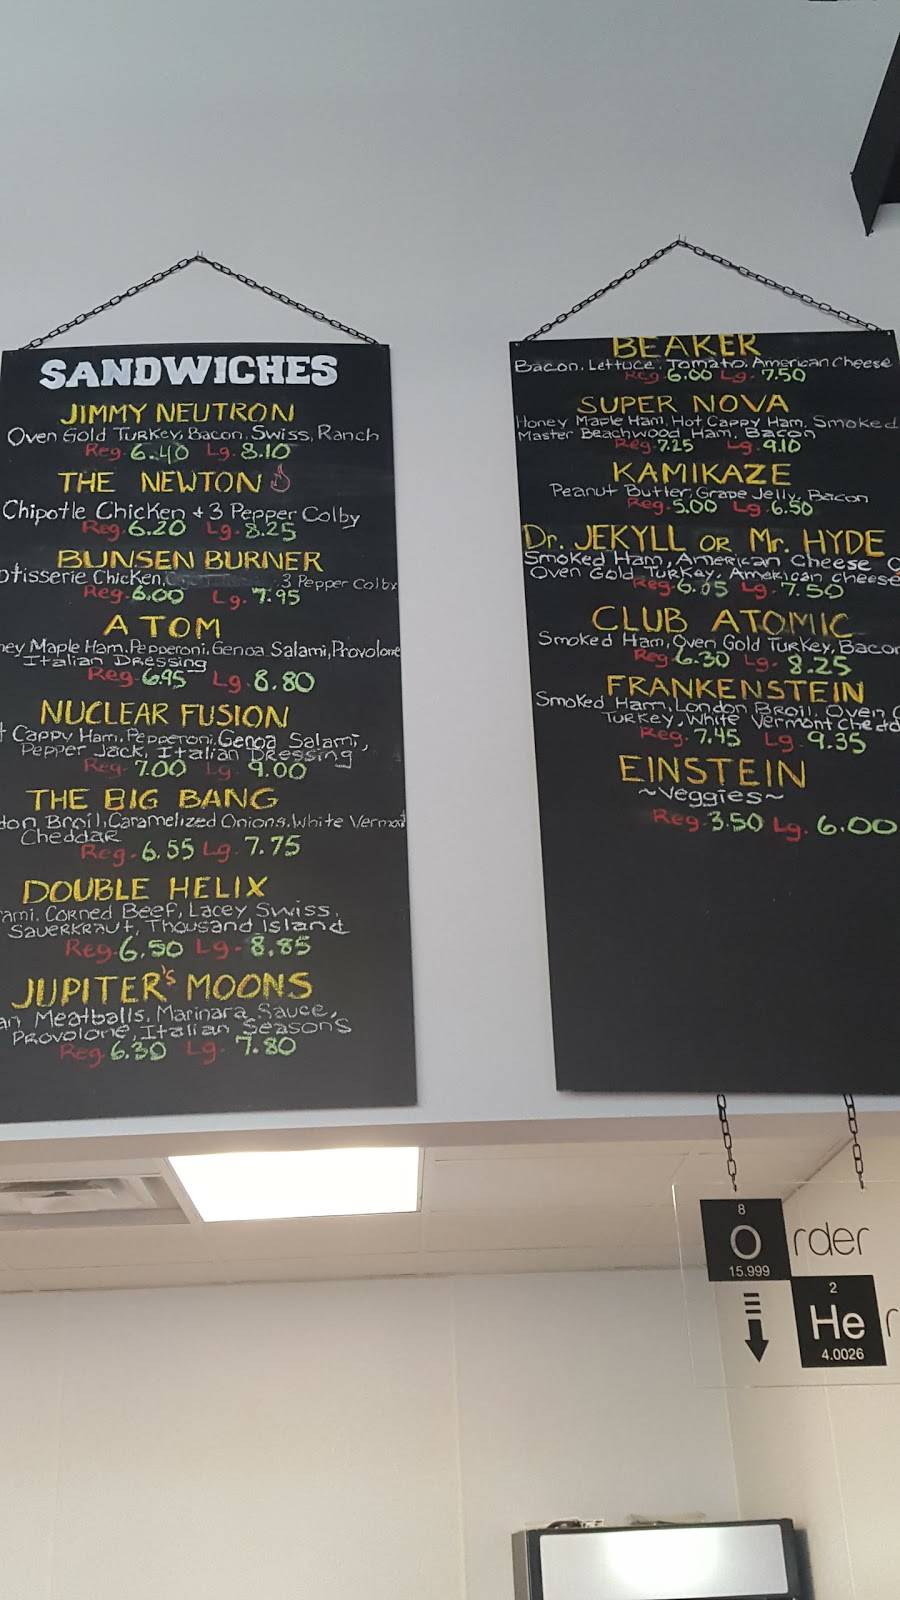 SANDWICHES
JIMMY NEUTRON
Oven Gold Turkey, Bacon, Swiss, Ranch
Reg. 6.40 Lg. 8.10
THE NEWTON
Chipotle Chicken + 3 Pepper Colby
Reg. 6.20 Lg. 8.25
BUNSEN BURNER
otisserie Chicken, 3 Pepper Colby
Reg. 6.00 Lg. 7.95
ATOM
ney Maple Ham, Pepperoni, Genoa Salami, Provolone
Italian Dressing
Reg. 6.95 Lg. 8.80
NUCLEAR FUSION
t Cappy Ham, Pepperoni, Genoa Salami,
Pepper Jack, Italian Dressing
Reg. 7.00 Lg. 9.00
THE BIG BANG
don Broil, Caramelized Onions, White Vermont
Cheddar
Reg. 6.55 Lg. 7.75
DOUBLE HELIX
ami, Corned Beef, Lacey Swiss,
Sauerkraut, Thousand Island
Reg. 6.50 Lg. 8.85
JUPITER'S MOONS
an Meatballs, Marinara Sauce,
Provolone, Italian Seasons
Reg. 6.30 Lg. 7.80
BEAKER
Bacon, Lettuce, Tomato, American Cheese
Reg. 6.00 Lg. 7.50
SUPER NOVA
Honey Maple Ham, Hot Cappy Ham, Smoked
Master Beachwood Ham, Bacon
Reg. 7.25 Lg. 9.10
KAMIKAZE
Peanut Butter, Grape Jelly, Bacon
Reg. 5.00 Lg. 6.50
Dr. JEKYLL OR Mr. HYDE
Smoked Ham, American Cheese O
Oven Gold Turkey, American cheese
Reg. 6.05 Lg. 7.50
CLUB ATOMIC
Smoked Ham, Oven Gold Turkey, Bacon
Reg. 6.30 Lg. 8.25
FRANKENSTEIN
Smoked Ham, London Broil, Oven G
Turkey, White Vermont Chedd
Reg. 7.45 Lg. 9.35
EINSTEIN
~Veggies~
Reg. 3.50 Lg. 6.00
8
Order
15.999
2
Her
4.0026